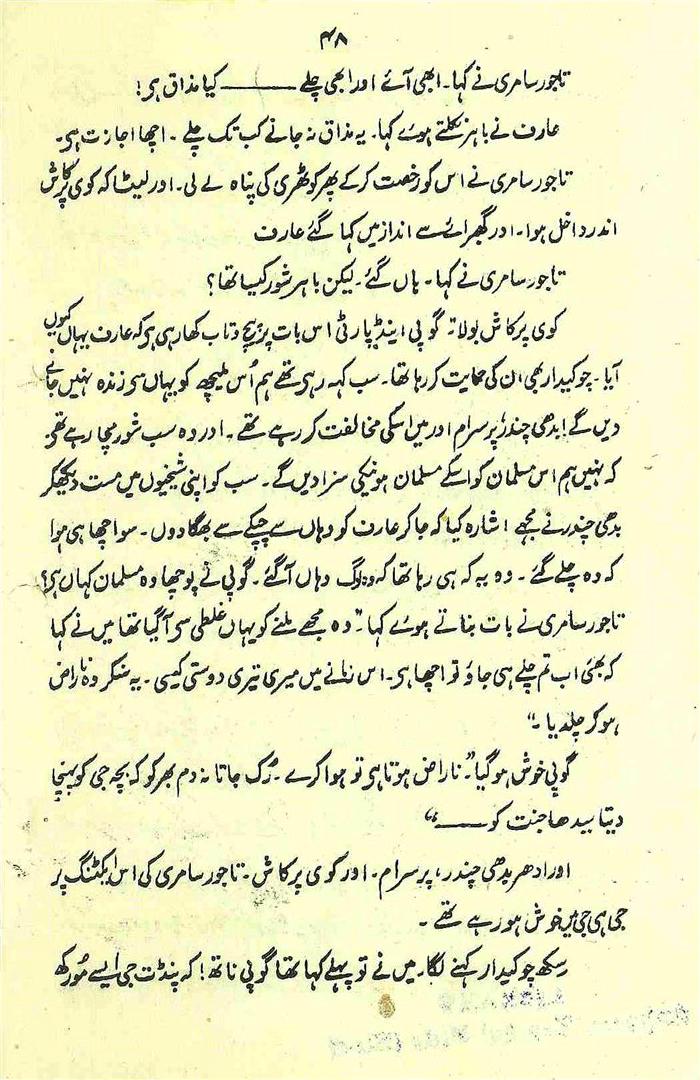 ۴۸
تاجور سامری نے کہا۔ ابھی آئے اور ابھی چلے ——— کیا مذاق ہی!
عارف نے باہر نکلتے ہوئے کہا۔ یہ مذاق نہ جانے کب تک چلے ۔ اچھا اجازت ہی۔
تاجور سامری نے اس کو رخصت کرکے پھر کوٹھری کی پناہ لے لی۔ اور لیٹا کہ کوی پرکاش
اندر داخل ہوا۔ اور گھبرائے سے انداز میں کہا گئے عارف
تاجور سامری نے کہا۔ ہاں گئے۔ لیکن باہر شور کیسا تھا؟
کوی پرکاش بولا۔ گوپی اینڈ پارٹی اس بات پر پیچ و تاب کھا رہی ہی کہ عارف یہاں کیوں
آیا۔ چوکیدار بھی ان کی حمایت کر رہا تھا۔ سب کہہ رہی تھے ہم اُس ملیچھ کو یہاں سی زندہ نہیں جانے
دیں گے! بدھی چندر پرسرام اور میں اسکی مخالفت کر رہے تھے ۔ اور وہ سب شور مچا رہے تھے
کہ نہیں ہم اس مسلمان کو اسکے مسلمان ہونیکی سزا دیں گے۔ سب کو اپنی شیخیوں میں مست دیکھکر
بدھی چندر نے مجھے اشارہ کیا کہ جا کر عارف کو وہاں سے چپکے سے بھگا دوں۔ سو اچھا ہی ہوا
کہ وہ چلے گئے ۔ وہ یہ کہ ہی رہا تھا کہ وہ لوگ وہاں آگئے۔ گوپی نے پوچھا وہ مسلمان کہاں ہی؟
تاجور سامری نے بات بناتے ہوئے کہا۔ "وہ مجھے ملنے کو یہاں غلطی سی آگیا تھا میں نے کہا
کہ بھئی اب تم چلے ہی جاؤ تو اچھا ہی۔ اس زمانے میں میری تیری دوستی کیسی ۔ یہ سنکر وہ ناراض
ہوکر چلدیا ۔"
گوپی خوش ہوگیا۔ "ناراض ہوتا ہی تو ہوا کرے ۔ رُک جاتا نہ دم بھر کو کہ بچہ جی کو پہنچا
دیتا سیدھا جنت کو ———"
اور ادھر بدھی چندر، پرسرام۔ اور کوی پرکاش۔ تاجور سامری کی اس ایکٹنگ پر
جی ہی جی میں خوش ہو رہے تھے ۔
رسکھ چوکیدار کہنے لگا۔ میں نے تو پہلے کہا تھا گوپی ناتھ! کہ پنڈت جی ایسے مُورکھ